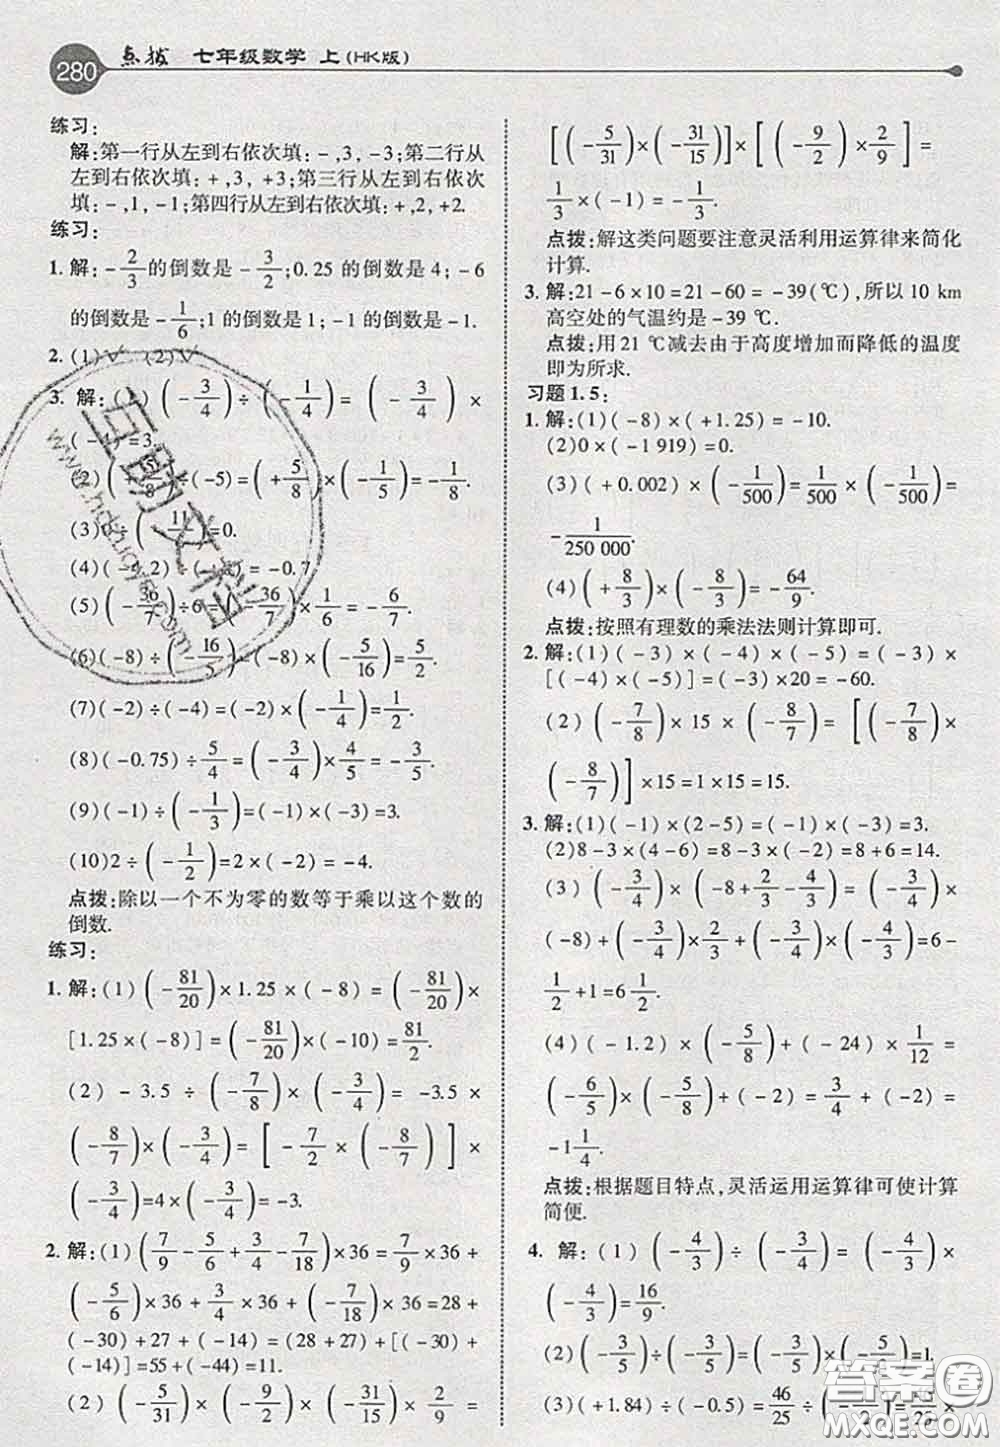 280 点拨 七年级数学 上(HK版)
练习：
解：第一行从左到右依次填：-，3，-3；第二行从
左到右依次填：+，3，+3；第三行从左到右依次
填：-，1，-1；第四行从左到右依次填：+，2，+2.
练习：
1. 解：-2/3的倒数是-3/2；0.25的倒数是4；-6
的倒数是-1/6；1的倒数是1；-1的倒数是-1.
2. (1)√ (2)√
3. 解：(1)(-3/4)÷(-1/4)=(-3/4)×
(-4)=3.
(2)(+5/8)÷(-5)=(+5/8)×(-1/5)=-1/8.
(3)0÷(-11/)=0.
(4)(-2)÷(+)=-0.7
(5)(-36/7)÷6=(-36/7)×1/6=-6/7.
(6)(-8)÷(-16/5)=(-8)×(-5/16)=5/2.
(7)(-2)÷(-4)=(-2)×(-1/4)=1/2.
(8)(-0.75)÷5/4=(-3/4)×4/5=-3/5.
(9)(-1)÷(-1/3)=(-1)×(-3)=3.
(10)2÷(-1/2)=2×(-2)=-4.
点拨：除以一个不为零的数等于乘以这个数的
倒数.
练习：
1. 解：(1)(-81/20)×1.25×(-8)=(-81/20)×
[1.25×(-8)]=(-81/20)×(-10)=81/2.
(2)-3.5÷(-7/8)×(-3/4)=-3.5×
(-8/7)×(-3/4)=[-7/2×(-8/7)]×
(-3/4)=4×(-3/4)=-3.
2. 解：(1)(7/9-5/6+3/4-7/18)×36=7/9×36+
(-5/6)×36+3/4×36+(-7/18)×36=28+
(-30)+27+(-14)=(28+27)+[(-30)+
(-14)]=55+(-44)=11.
(2)(-5/31)×(-9/2)×(-31/15)×2/9=
[(-5/31)×(-31/15)]×[(-9/2)×2/9]=
1/3×(-1)=-1/3.
点拨：解这类问题要注意灵活利用运算律来简化
计算.
3. 解：21-6×10=21-60=-39(℃)，所以10 km
高空处的气温约是-39 ℃.
点拨：用21 ℃减去由于高度增加而降低的温度
即为所求.
习题1.5：
1. 解：(1)(-8)×(+1.25)=-10.
(2)0×(-1 919)=0.
(3)(+0.002)×(-1/500)=1/500×(-1/500)=
-1/250 000.
(4)(+8/3)×(-8/3)=-64/9.
点拨：按照有理数的乘法法则计算即可.
2. 解：(1)(-3)×(-4)×(-5)=(-3)×
[(-4)×(-5)]=(-3)×20=-60.
(2)(-7/8)×15×(-8/7)=[(-7/8)×
(-8/7)]×15=1×15=15.
3. 解：(1)(-1)×(2-5)=(-1)×(-3)=3.
(2)8-3×(4-6)=8-3×(-2)=8+6=14.
(3)(-3/4)×(-8+2/3-4/3)=(-3/4)×
(-8)+(-3/4)×2/3+(-3/4)×(-4/3)=6-
1/2+1=6 1/2.
(4)(-1.2)×(-5/8)+(-24)×1/12=
(-6/5)×(-5/8)+(-2)=3/4+(-2)=
-1 1/4.
点拨：根据题目特点，灵活运用运算律可使计算
简便.
4. 解：(1)(-4/3)÷(-3/4)=(-4/3)×
(-4/3)=16/9.
(2)(-3/5)÷(-3/5)=(-3/5)×(-5/3)=1.
(3)(+1.84)÷(-0.5)=46/25×(-2)=-92/25.
互助文档
www.hdzuoye.com
答案圈
MXQE.COM